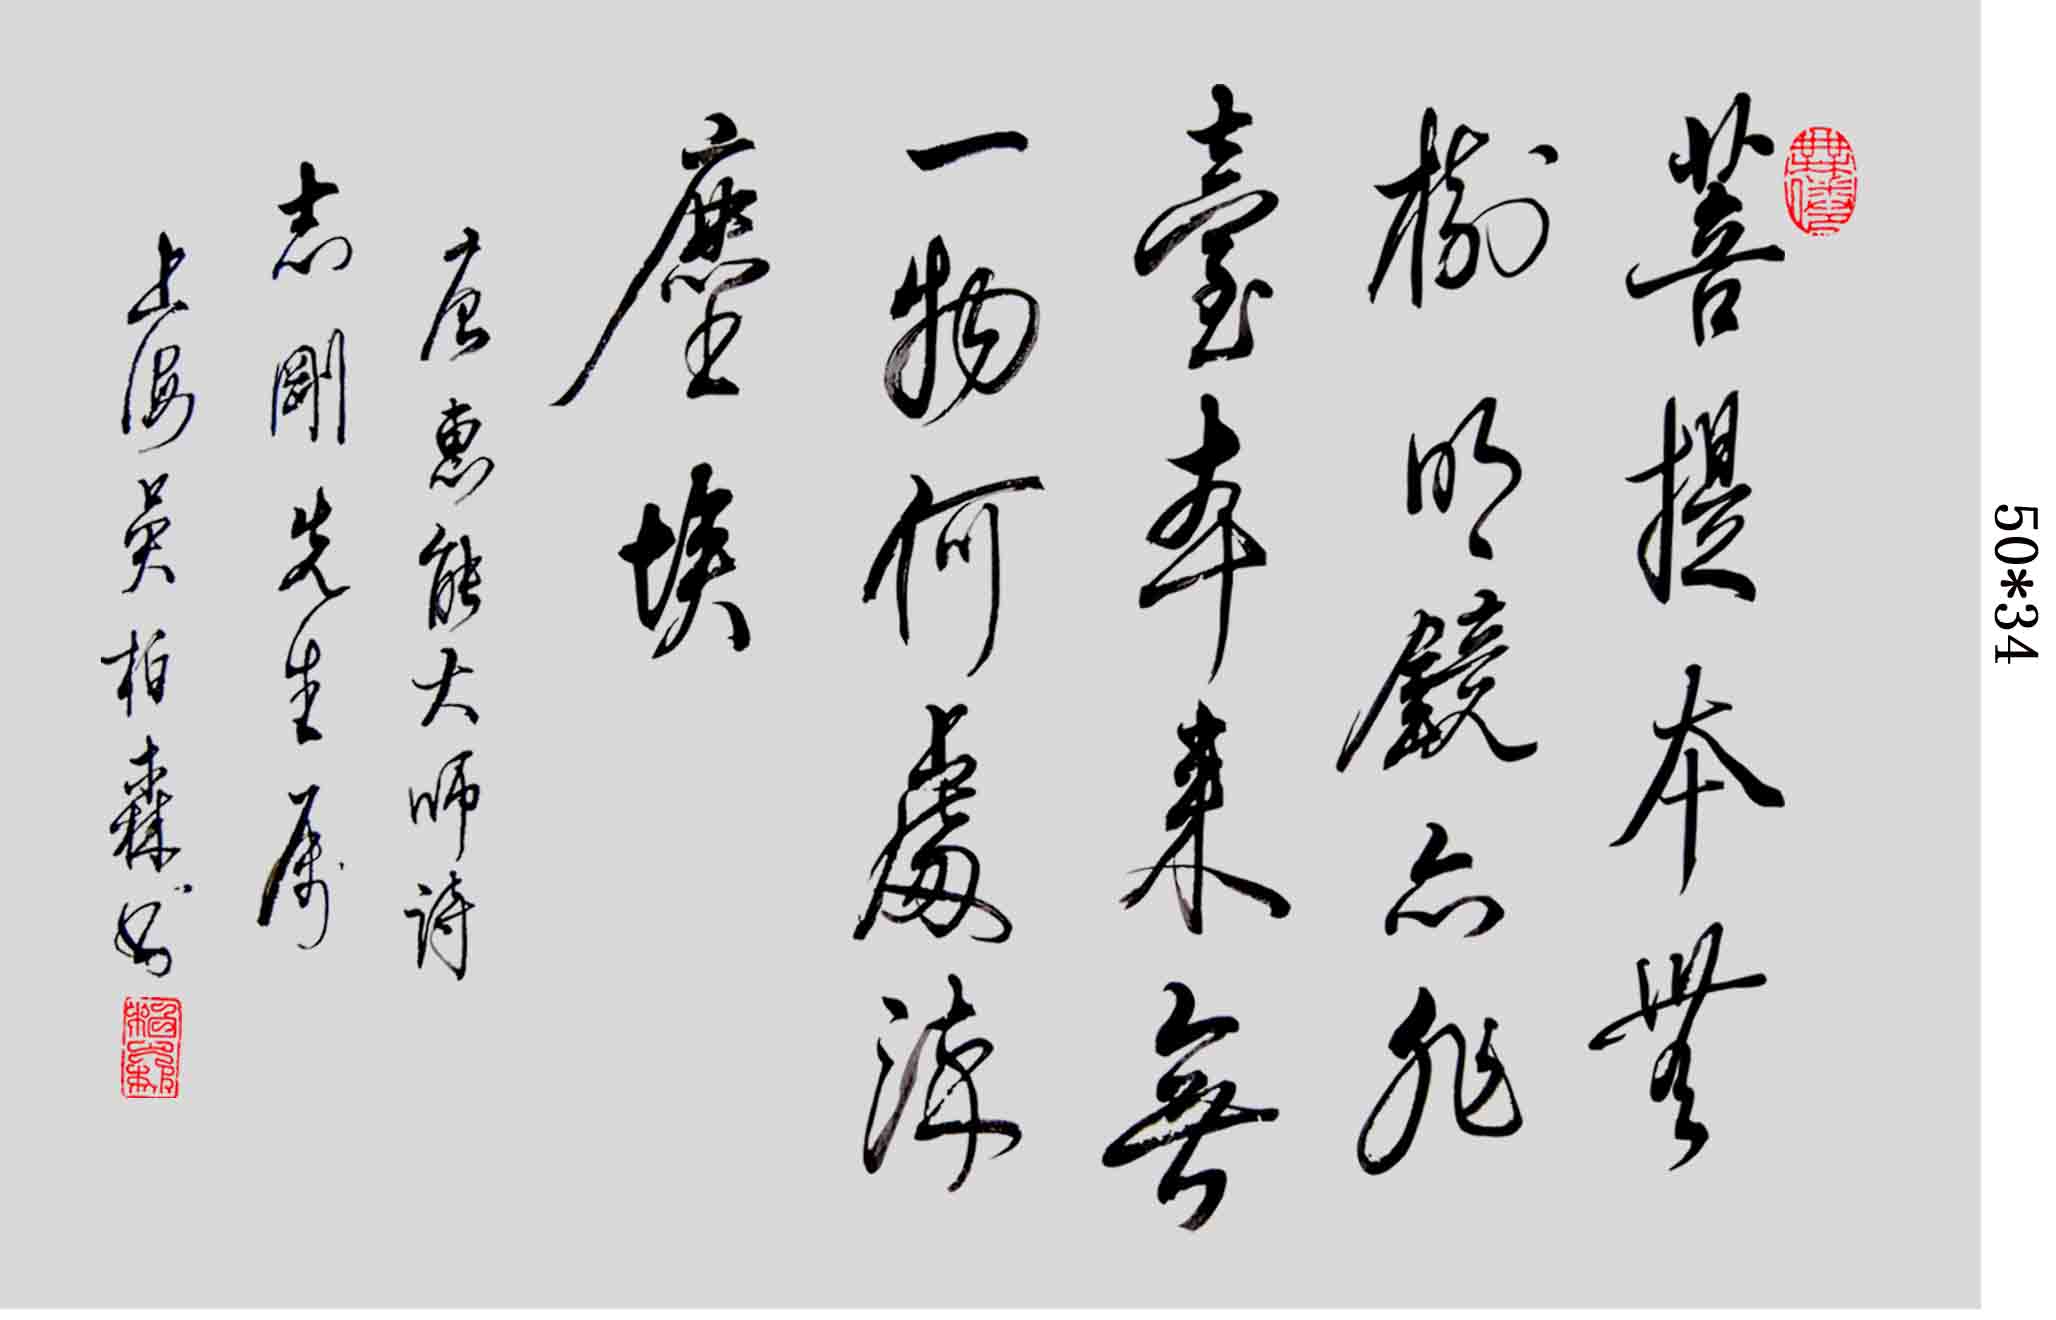 菩提本無
樹明鏡亦非
臺本来無
一物何處染
塵埃
唐惠能大師詩
志剛先生属
上海吴柏森書
50*34